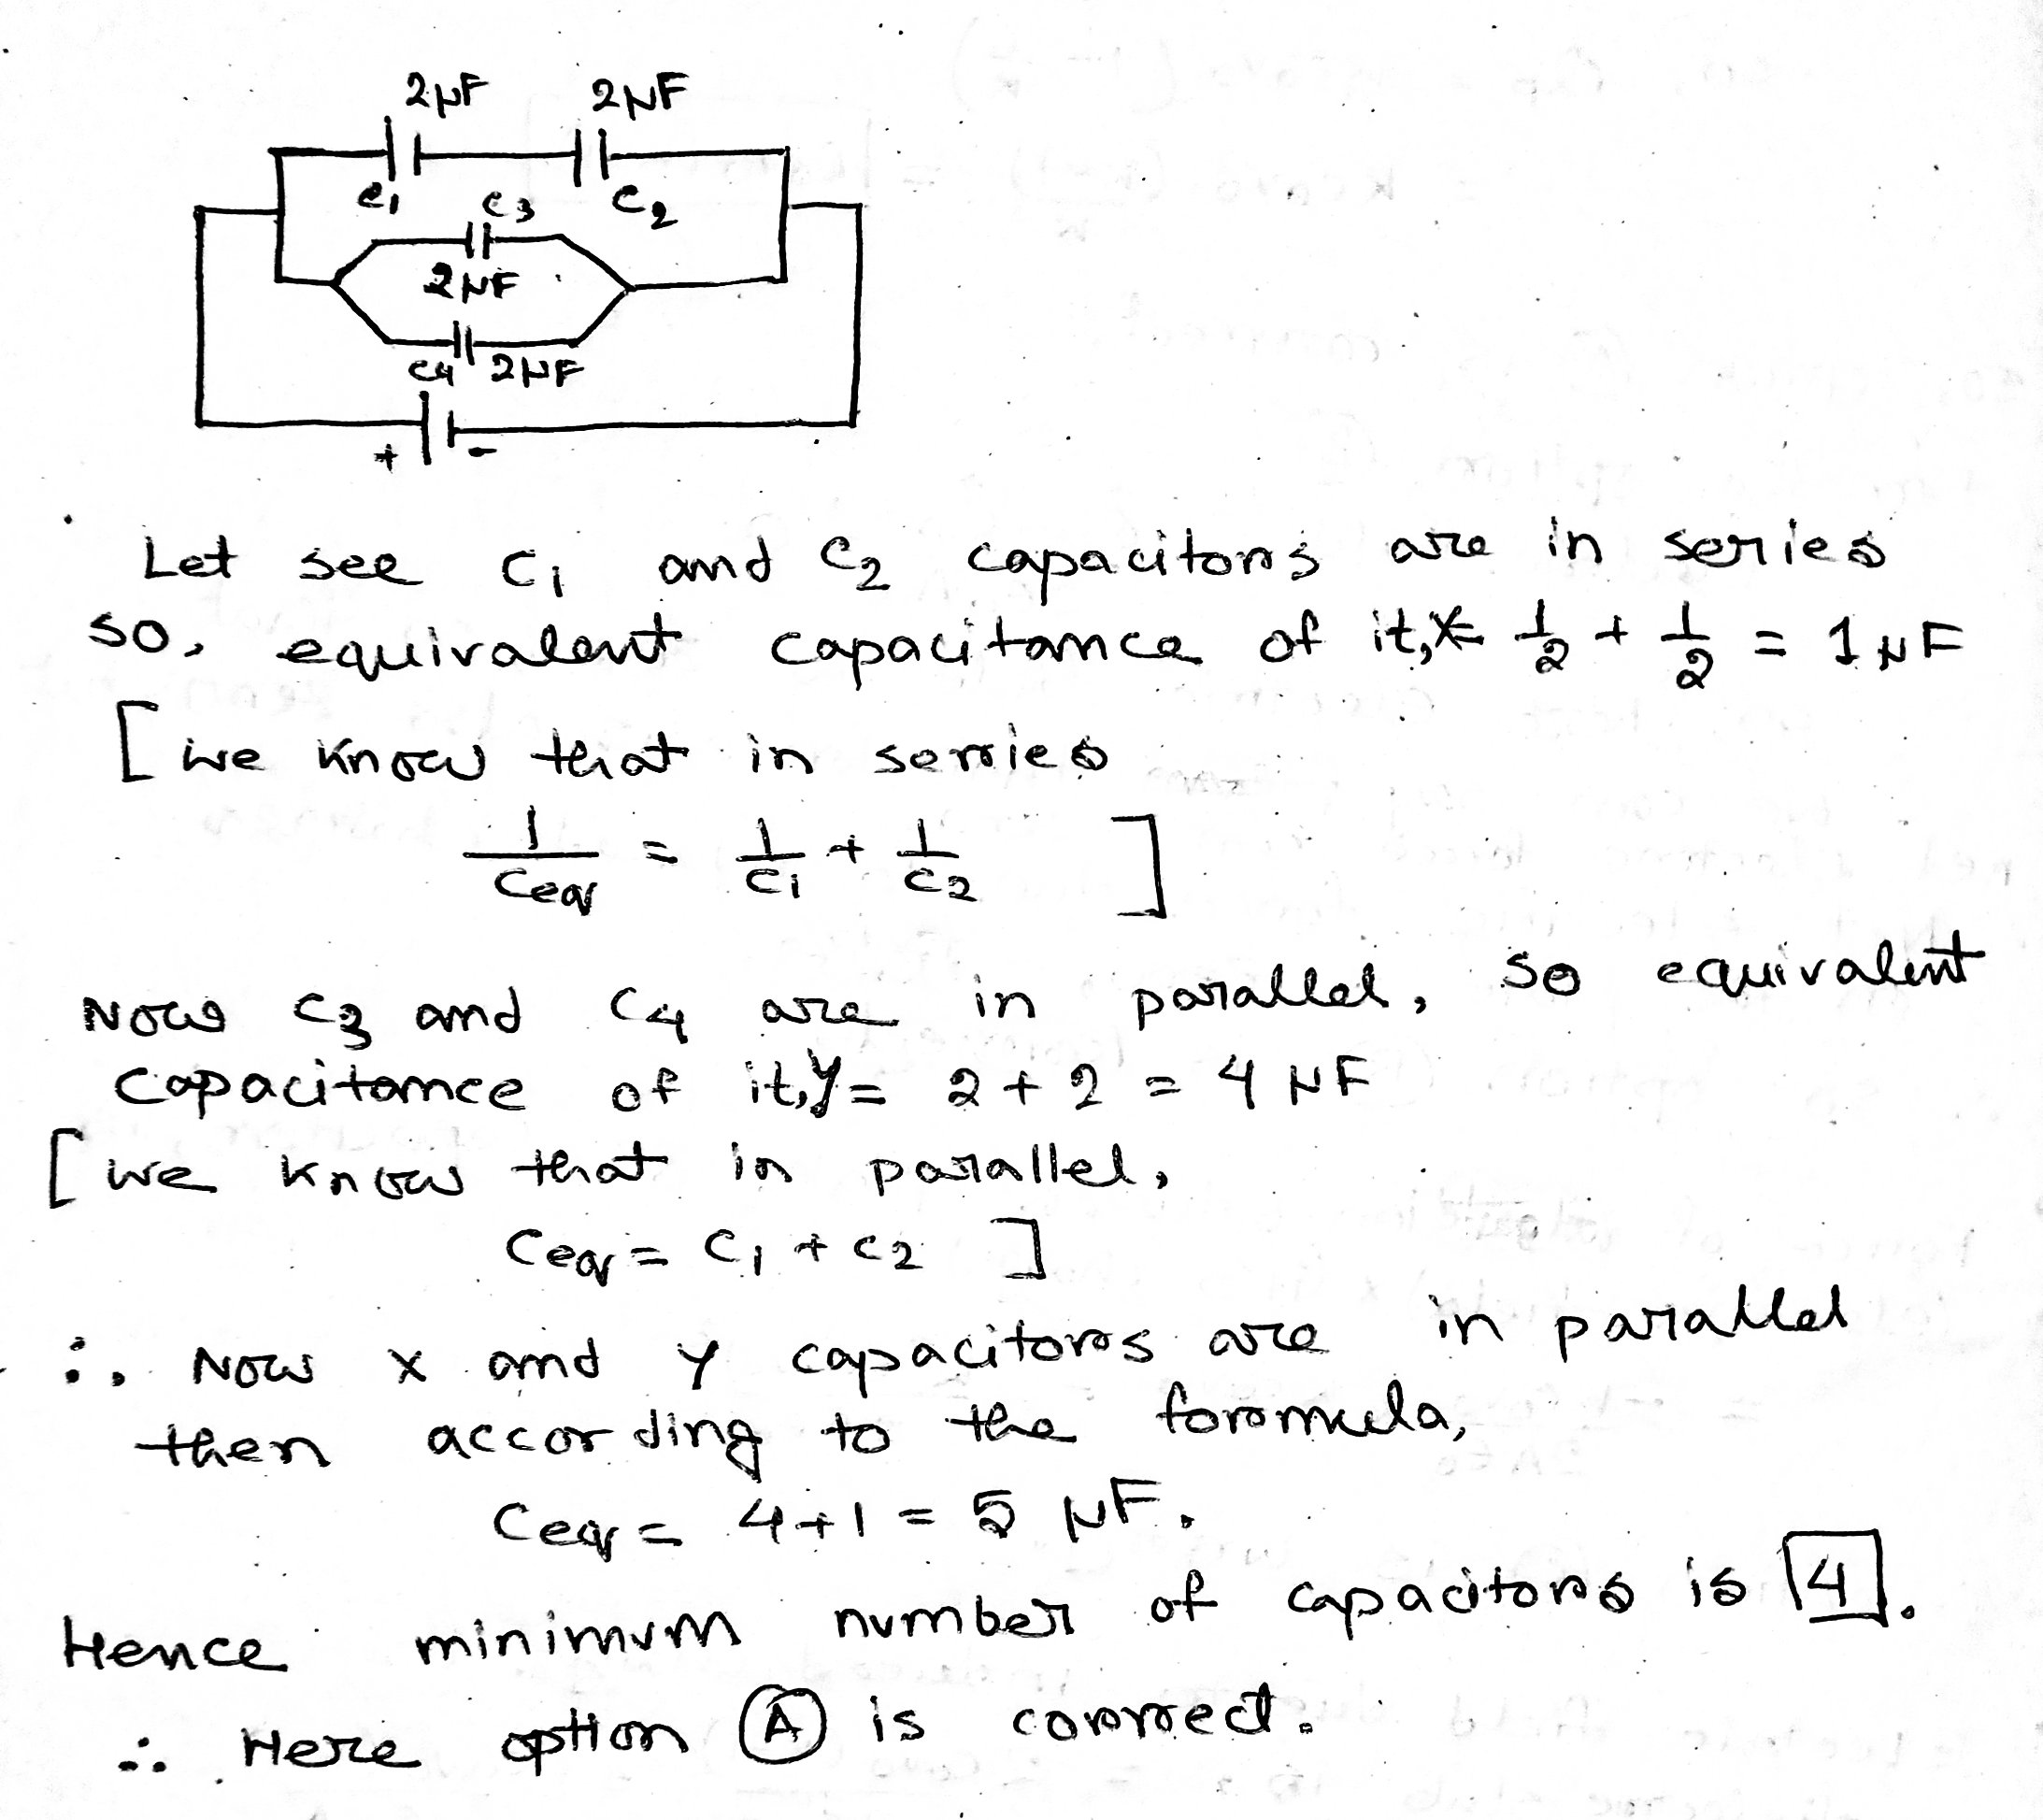 2μF 2μF
C1 C3 C2
2μF
C4 2μF
+ -
Let see C1 and C2 capacitors are in series
so, equivalent capacitance of it, X = 1/2 + 1/2 = 1 μF
[ we know that in series
1/Ceq = 1/C1 + 1/C2 ]
Now C3 and C4 are in parallel, so equivalent
capacitance of it, Y = 2 + 2 = 4 μF
[ we know that in parallel,
Ceq = C1 + C2 ]
∴ Now X and Y capacitors are in parallel
then according to the formula,
Ceq = 4+1 = 5 μF.
Hence minimum number of capacitors is 4.
∴ Here option (A) is correct.